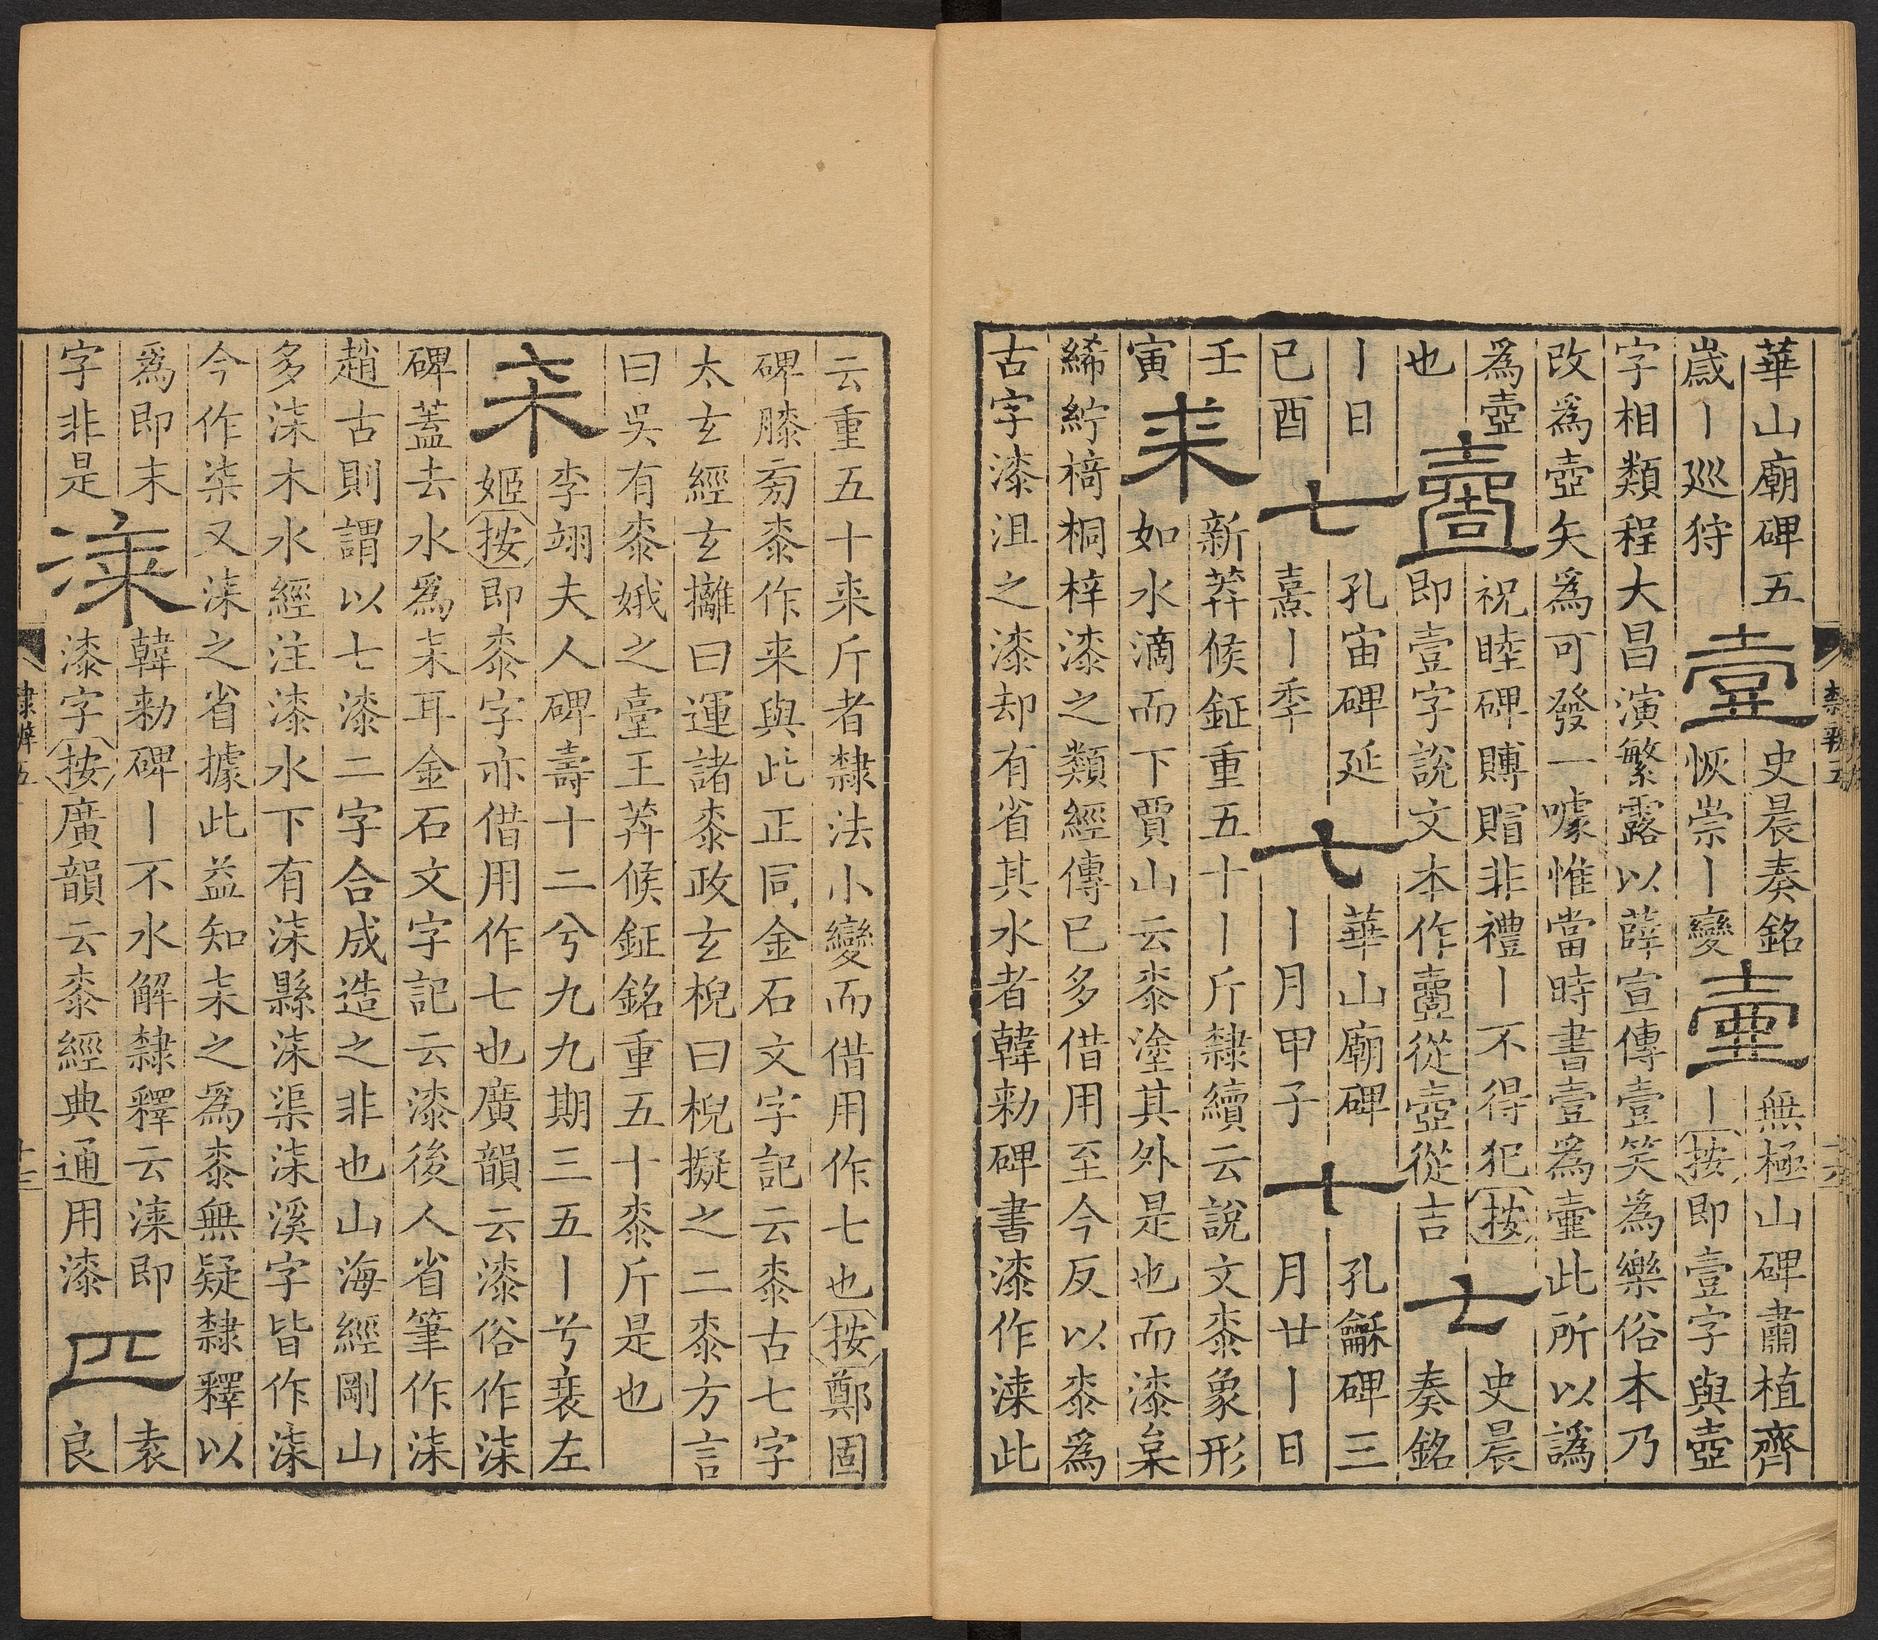 華山廟碑五 壹 史晨奏銘 壹 無極山碑肅植齊
歲丨巡狩 恢崇丨變 丨按即壹字與壺
字相類程大昌演繁露以薛宣傳壹笑為樂俗本乃
改為壺矢為可發一噱惟當時書壹為壷此所以譌
為壺 祝睦碑賻賵非禮丨不得犯按 史晨
也 壹 即壹字說文本作壹從壺從吉 七 奏銘
丨日 孔宙碑延 華山廟碑 孔龢碑三
已酉 七 熹丨季 七 丨月甲子 十 月廿丨日
壬 新莽候鉦重五十丨斤隸續云說文桼象形
寅 耒 如水滴而下賈山云桼塗其外是也而漆枲
絺紵椅桐梓漆之類經傳已多借用至今反以桼為
古字漆沮之漆却有省其水者韓勑碑書漆作涞此
云重五十来斤者隸法小變而借用作七也按鄭固
碑膝㫄桼作来與此正同金石文字記云桼古七字
太玄經玄攡曰運諸桼政玄棿曰棿擬之二桼方言
曰吳有桼娥之臺王莽候鉦銘重五十桼斤是也
李翊夫人碑壽十二兮九九期三五丨兮衰左
姬按即桼字亦借用作七也廣韻云漆俗作柒
碑蓋去水為耒耳金石文字記云漆後人省筆作柒
趙古則謂以七漆二字合成造之非也山海經剛山
多柒木水經注漆水下有柒縣柒渠柒溪字皆作柒
今作柒又柒之省據此益知耒之為桼無疑隸釋以
為即末 韓勑碑丨不水解隸釋云涞即 袁
字非是 涞 漆字按廣韻云桼經典通用漆 匹 良
隸辨五